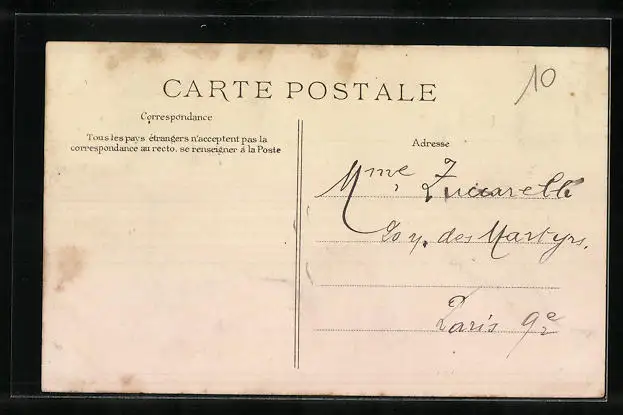 10
CARTE POSTALE
Correspondance
Tous les pays étrangers n'acceptent pas la
correspondance au recto. se renseigner à la Poste
Adresse
Mme Zuccarelli
des Martyrs.
Paris 9e